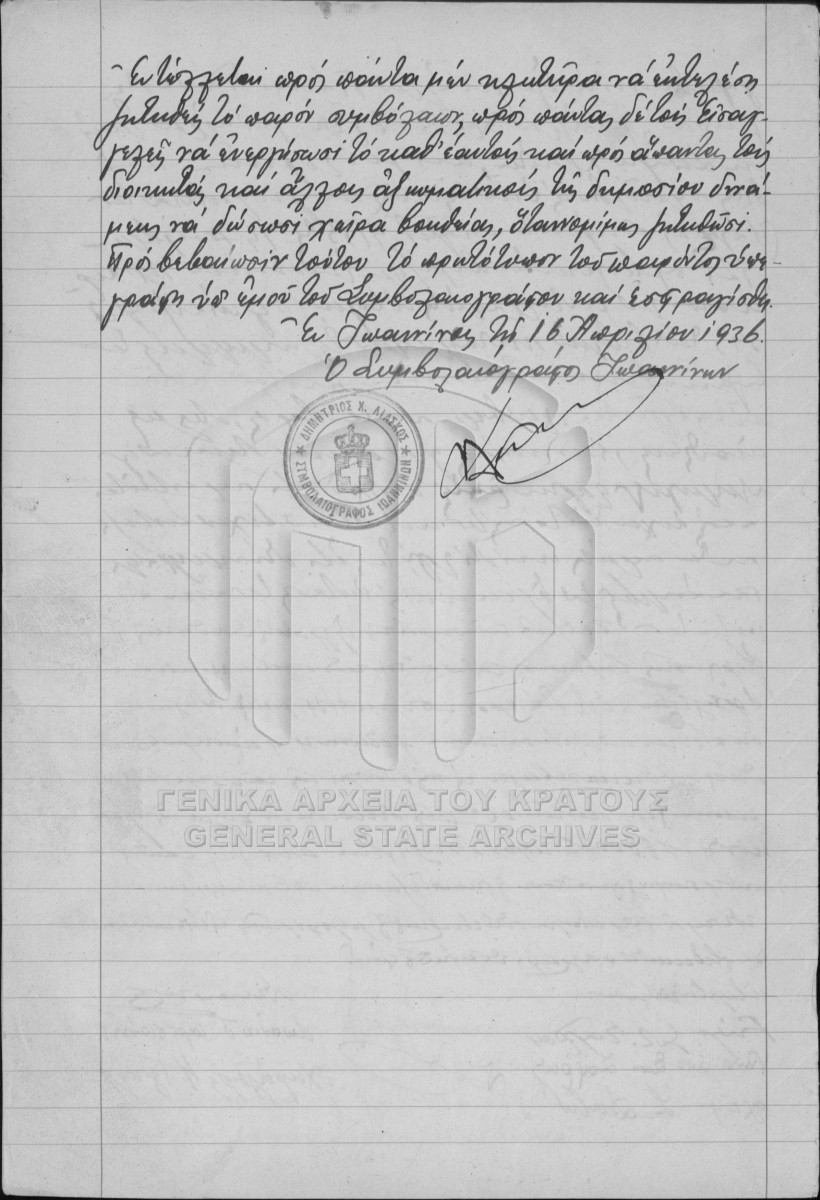 Ἐντέλλεται πρός πάντα μέν κλητῆρα νά ἐκτελέσῃ
ζητηθείς τό παρόν συμβόλαιον, πρός πάντας δέ τούς Εἰσαγ-
γελεῖς νά ἐνεργήσωσι τό καθ' ἑαυτούς καί πρός ἅπαντας τούς
διοικητάς καί ἄλλους ἀξιωματικούς τῆς δημοσίου δυνά-
μεως νά δώσωσι χεῖρα βοηθείας, ὅταν νομίμως ζητηθῶσι.
Πρός βεβαίωσιν τούτου τό πρωτότυπον τοῦ παρόντος ὑπε-
γράφη ὑπ' ἐμοῦ τοῦ Συμβολαιογράφου καί ἐσφραγίσθη.
Ἐν Ἰωαννίνοις τῇ 16 Ἀπριλίου 1936.
Ὁ Συμβολαιογράφος Ἰωαννίνων
ΔΗΜΗΤΡΙΟΣ Χ. ΛΙΑΣΚΟΣ
ΣΥΜΒΟΛΑΙΟΓΡΑΦΟΣ ΙΩΑΝΝΙΝΩΝ
ΓΕΝΙΚΑ ΑΡΧΕΙΑ ΤΟΥ ΚΡΑΤΟΥΣ
GENERAL STATE ARCHIVES